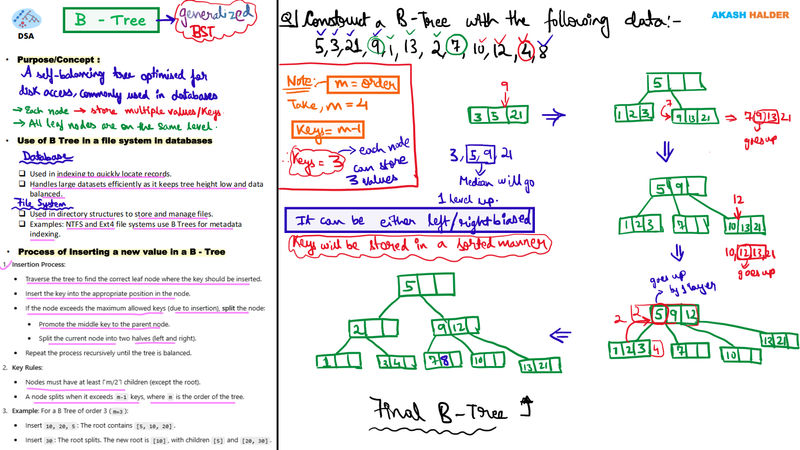 DSA
B - Tree
generalized
BST
Purpose/Concept :
A self-balancing tree optimised for
disk access, commonly used in databases
→ Each node → store multiple values/Keys
→ All leaf nodes are on the same level.
Use of B Tree in a file system in databases
Database
Used in indexing to quickly locate records.
Handles large datasets efficiently as it keeps tree height low and data
balanced.
File System
Used in directory structures to store and manage files.
Examples: NTFS and Ext4 file systems use B Trees for metadata
indexing.
Process of Inserting a new value in a B - Tree
1. Insertion Process:
Traverse the tree to find the correct leaf node where the key should be inserted.
Insert the key into the appropriate position in the node.
If the node exceeds the maximum allowed keys (due to insertion), split the node:
Promote the middle key to the parent node.
Split the current node into two halves (left and right).
Repeat the process recursively until the tree is balanced.
2. Key Rules:
Nodes must have at least ⌈m/2⌉ children (except the root).
A node splits when it exceeds m-1 keys, where m is the order of the tree.
3. Example: For a B Tree of order 3 ( m=3 ):
Insert 10, 20, 5 : The root contains [5, 10, 20] .
Insert 30 : The root splits. The new root is [10] , with children [5] and [20, 30] .
AKASH HALDER
Q) Construct a B-Tree with the following data:-
5, 3, 21, 9, 1, 13, 2, 7, 10, 12, 4, 8
Note:- m = order
Take, m = 4
Keys = m-1
Keys = 3 → each node
can store
3 values
9
3 5 21
⇒
3, 5, 9, 21
Median will go
1 level up.
It can be either left/right biased
Keys will be stored in a sorted manner
5
1 2 3
7
9 13 21
⇒ 7 9 13 21
goes up
5 9
12
1 2 3
7
10 13 21
10, 12, 13, 21
goes up
goes up
by 1 layer
2
2
5 9 12
1 2 3 4
7
10
13 21
5
2
9 12
1
3 4
7 8
10
13 21
Final B-Tree